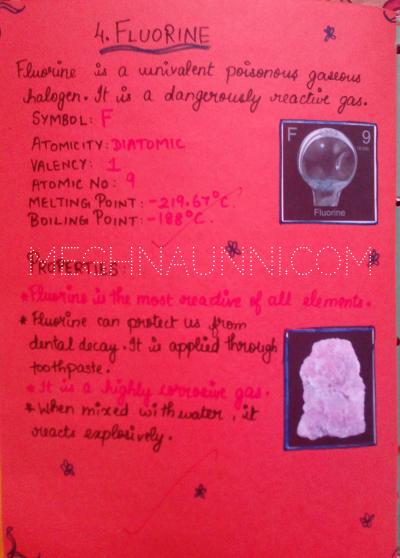 4. FLUORINE
Fluorine is a univalent poisonous gaseous
halogen. It is a dangerously reactive gas.
SYMBOL: F
ATOMICITY: DIATOMIC
VALENCY: 1
ATOMIC NO: 9
MELTING POINT: -219.67°C.
BOILING POINT: -188°C.
F 9
Fluorine
MEGHNAUNNI.COM
PROPERTIES:
* Fluorine is the most reactive of all elements.
* Fluorine can protect us from
dental decay. It is applied through
toothpaste.
* It is a highly corrosive gas.
* When mixed with water, it
reacts explosively.